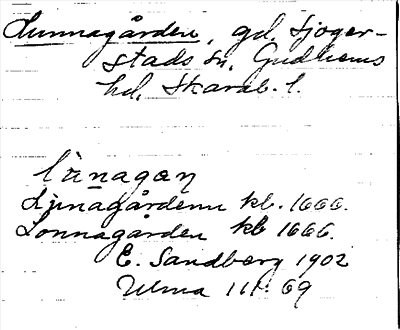 Lunnagården, gd, Sjoger-
stads sn, Gudhems
hd, Skarab. l.
lùnagaɳ
Ljunagårdenn kb. 1666.
Lonnagården kb 1666.
E. Sandberg 1902
Ulma 111:69